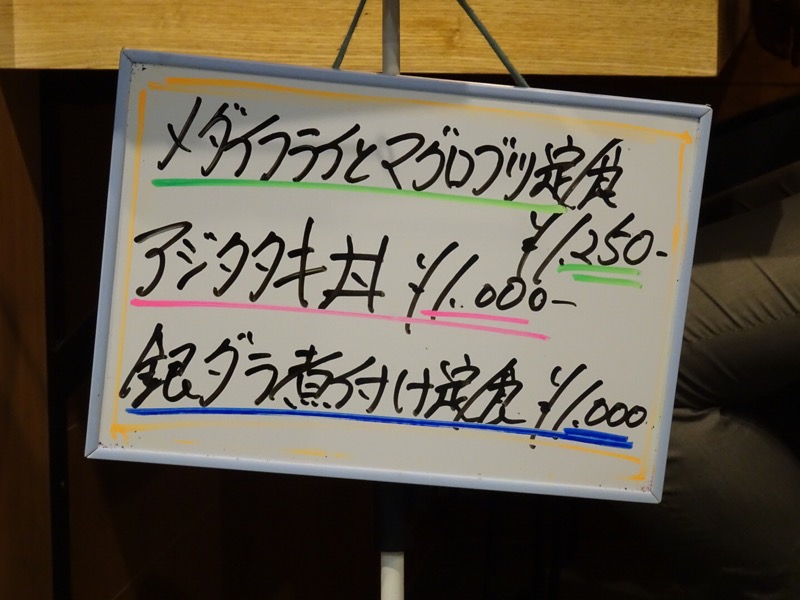 メダイフライとマグロブツ定食
¥1.250-
アジタタキ丼 ¥1.000-
銀ダラ煮付け定食 ¥1.000